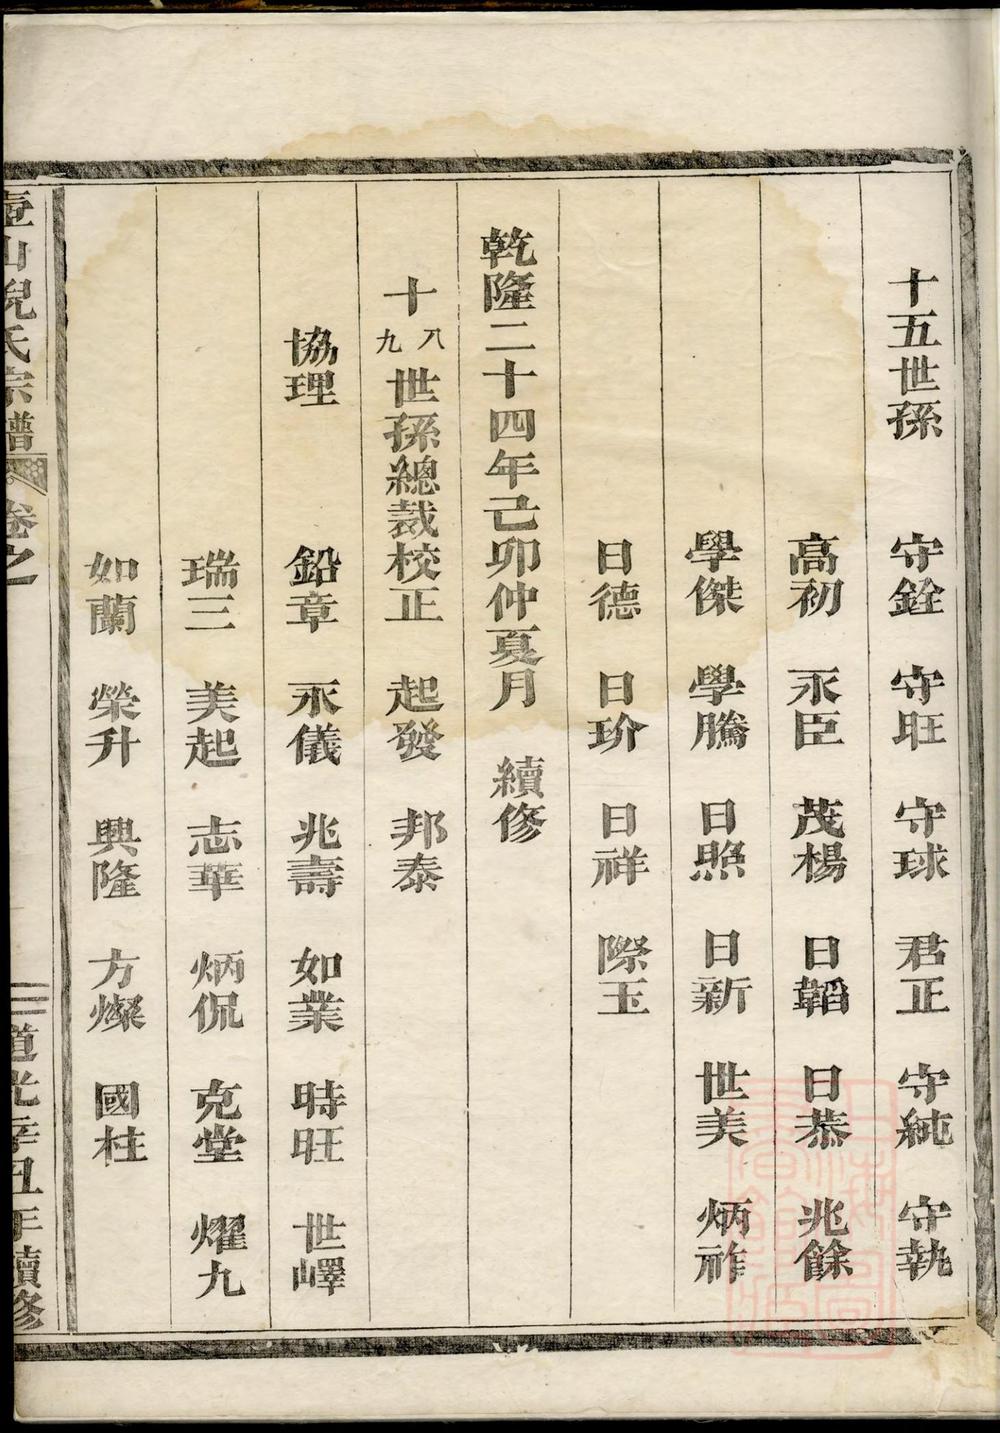 十五世孫 守銓 守旺 守球 君正 守純 守執
高初 永臣 茂楊 日韜 日恭 兆餘
學傑 學騰 日照 日新 世美 炳祚
日德 日玠 日祥 際玉
乾隆二十四年己卯仲夏月 續修
十八九世孫總裁校正 起發 邦泰
協理 鉛章 永儀 兆壽 如業 時旺 世嶧
瑞三 美起 志華 炳侃 克堂 燿九
如蘭 榮升 興隆 方燦 國柱
壼山倪氏宗譜 卷之 道光辛丑年續修